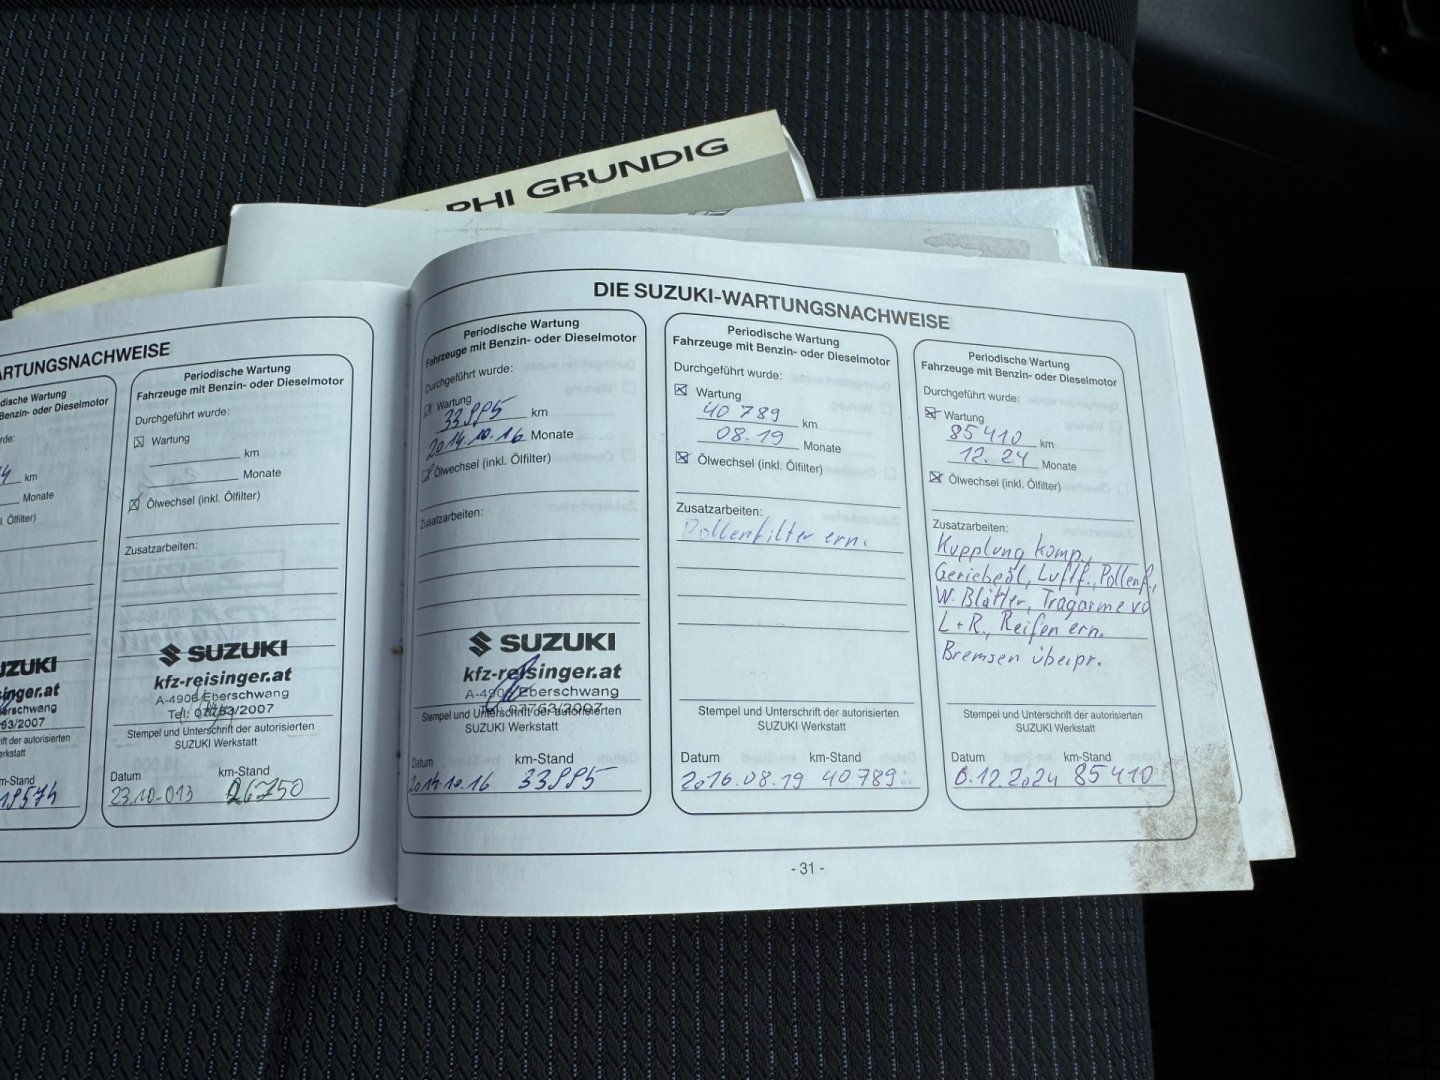 PHI GRUNDIG
ARTUNGSNACHWEISE
dische Wartung
Benzin- oder Dieselmotor
rde:
4 km
Monate
l. Ölfilter)
UZUKI
inger.at
53/2007
ift der autorisierten
erkstatt
m-Stand
Periodische Wartung
Fahrzeuge mit Benzin- oder Dieselmotor
Durchgeführt wurde:
Wartung
km
Monate
Ölwechsel (inkl. Ölfilter)
Zusatzarbeiten:
SUZUKI
kfz-reisinger.at
A-4906 Eberschwang
Tel: 07753/2007
Stempel und Unterschrift der autorisierten
SUZUKI Werkstatt
Datum km-Stand
23.10.013 26750
DIE SUZUKI-WARTUNGSNACHWEISE
Periodische Wartung
Fahrzeuge mit Benzin- oder Dieselmotor
Durchgeführt wurde:
Wartung
33995 km
2014.10.16 Monate
Ölwechsel (inkl. Ölfilter)
Zusatzarbeiten:
SUZUKI
kfz-reisinger.at
A-4906 Eberschwang
07753/2007
Stempel und Unterschrift der autorisierten
SUZUKI Werkstatt
Datum km-Stand
2014.10.16 33995
Periodische Wartung
Fahrzeuge mit Benzin- oder Dieselmotor
Durchgeführt wurde:
Wartung
40789 km
08.19 Monate
Ölwechsel (inkl. Ölfilter)
Zusatzarbeiten:
Pollenfilter ern.
Stempel und Unterschrift der autorisierten
SUZUKI Werkstatt
Datum km-Stand
2016.08.19 40789
Periodische Wartung
Fahrzeuge mit Benzin- oder Dieselmotor
Durchgeführt wurde:
Wartung
85410 km
12.24 Monate
Ölwechsel (inkl. Ölfilter)
Zusatzarbeiten:
Kupplung komp.,
Geriebeöl, Luftf., Pollenf.,
W. Blätter, Tragarme vo
L+R., Reifen ern.
Bremsen überpr.
Stempel und Unterschrift der autorisierten
SUZUKI Werkstatt
Datum km-Stand
6.12.2024 85410
- 31 -